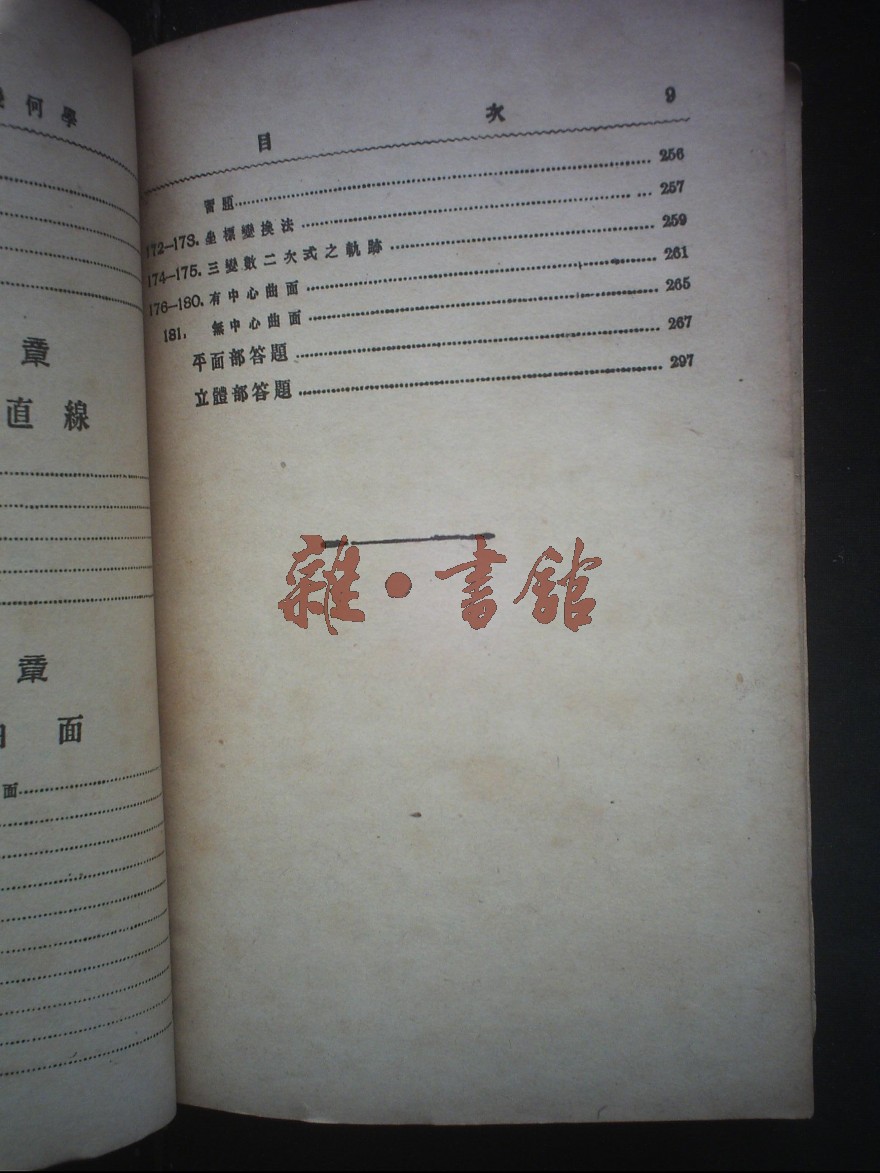 何學
章
直線
章
面
面
目次 9
習題 256
172—173. 坐標變換法 257
174—175. 三變數二次式之軌跡 259
176—180. 有中心曲面 261
181. 無中心曲面 265
平面部答題 267
立體部答題 297
雜•書館